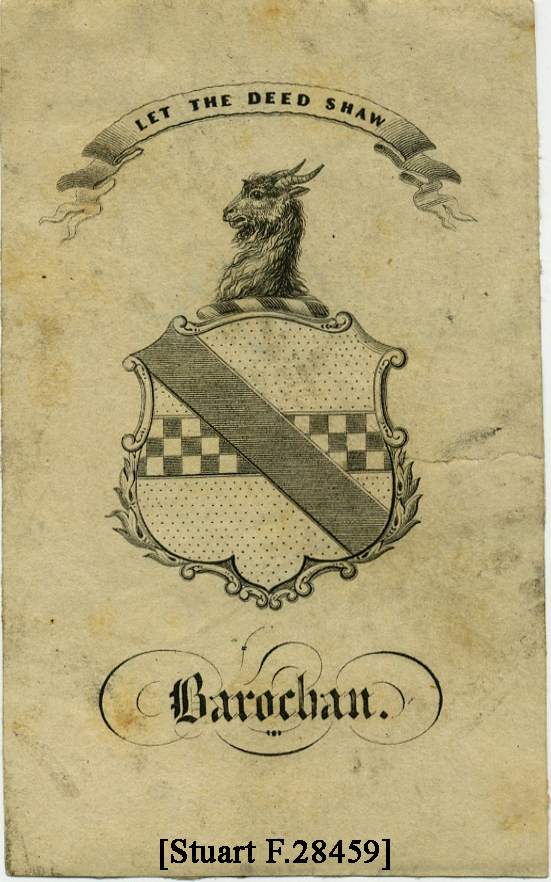 LET THE DEED SHAW
Barochan.
[Stuart F.28459]